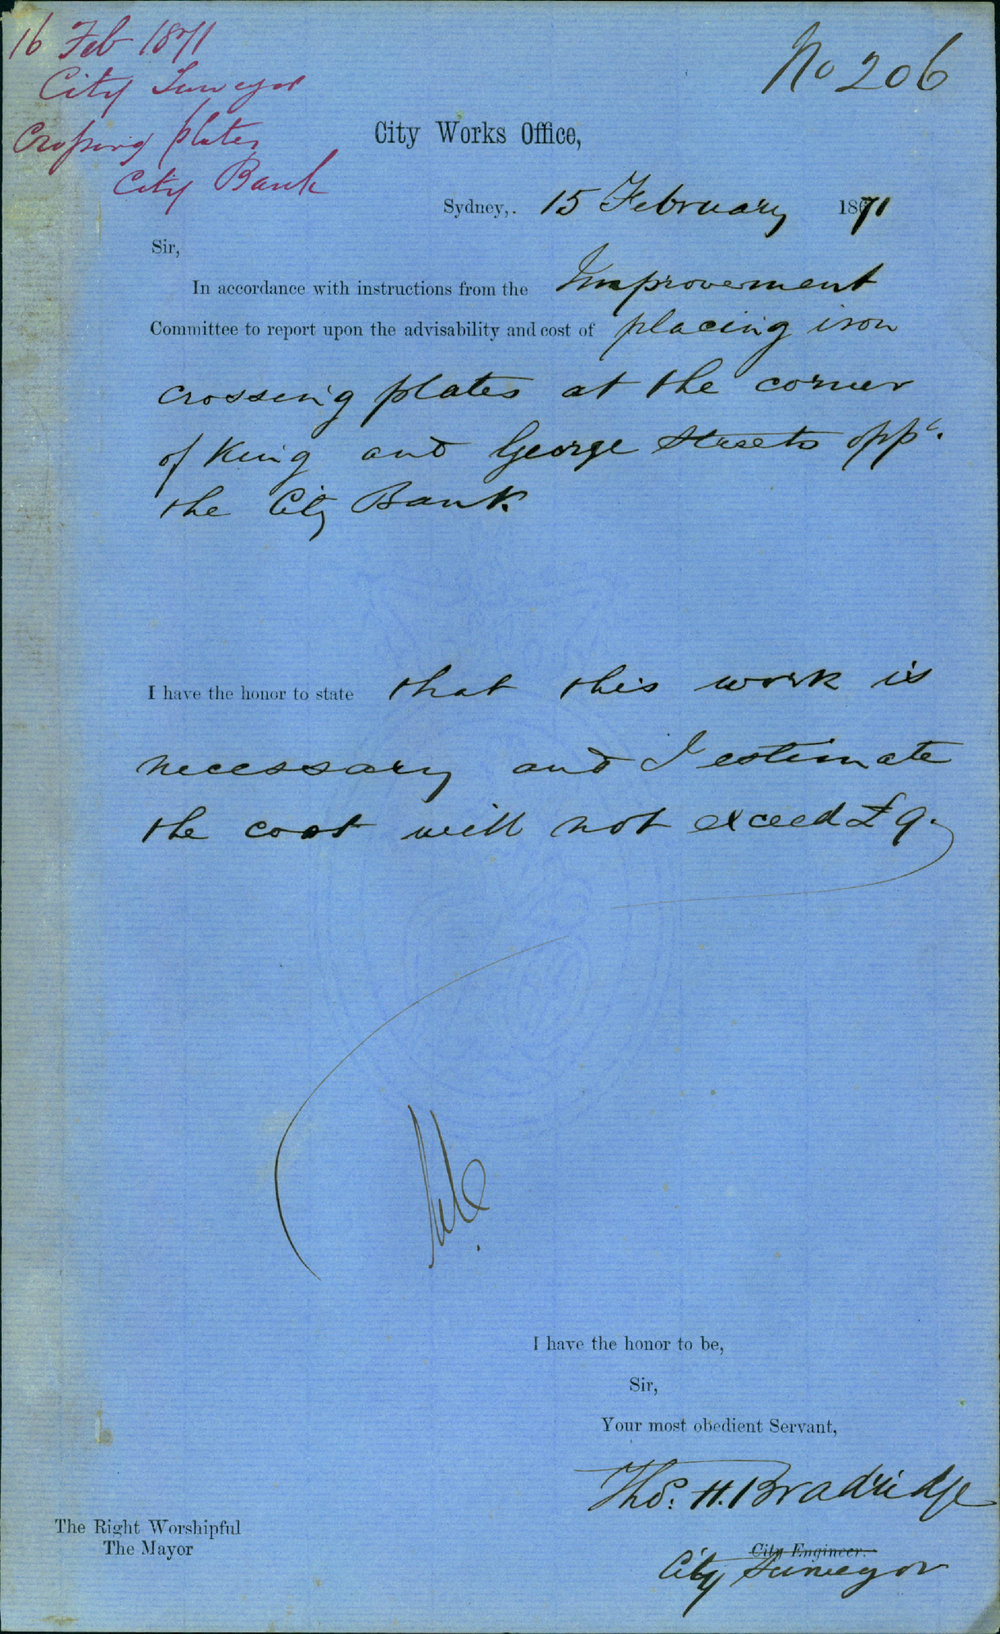 16 Feb 1871
City Surveyor
Crossing plates
City Bank
No 206
City Works Office,
Sydney, 15 February 1871
Sir,
In accordance with instructions from the Improvement
Committee to report upon the advisability and cost of placing iron
crossing plates at the corner
of King and George Streets oppe.
the City Bank.
I have the honor to state that this work is
necessary and I estimate
the cost will not exceed £9.
I have the honor to be,
Sir,
Your most obedient Servant,
Thos. H. Bradridge
City Engineer.
City Surveyor
The Right Worshipful
The Mayor